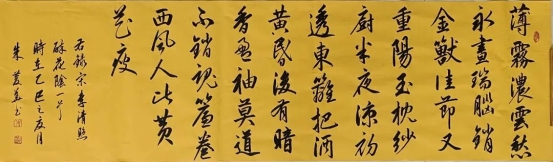 薄霧濃雲愁
永晝瑞腦銷
金獸佳節又
重陽玉枕紗
廚半夜涼初
透東籬把酒
黃昏後有暗
香盈袖莫道
不銷魂簾卷
西風人比黃
花瘦
右錄宋李清照
醉花陰一首
時在乙巳之夏月
朱